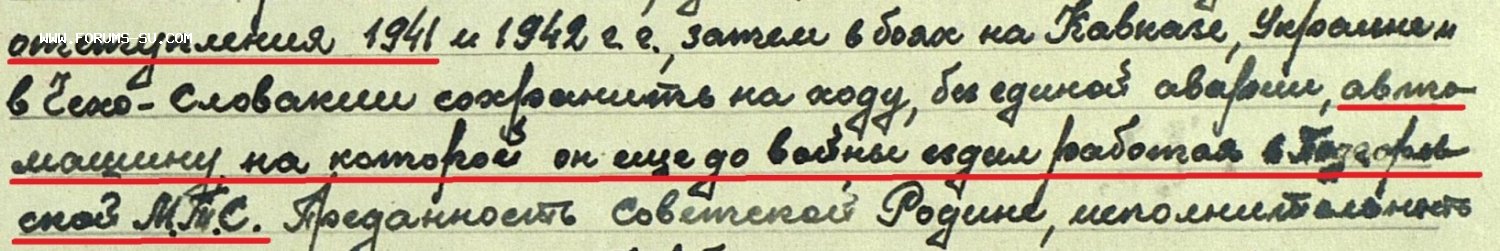 WWW.FORUMS-SU.COM
отступления 1941 и 1942 г.г., затем в боях на Кавказе, Украине и
в Чехо-Словакии сохранить на ходу, без единой аварии, авто-
машину, на которой он еще до войны ездил работая в
ской М.Т.С. Преданность Советской Родине, исполнительность